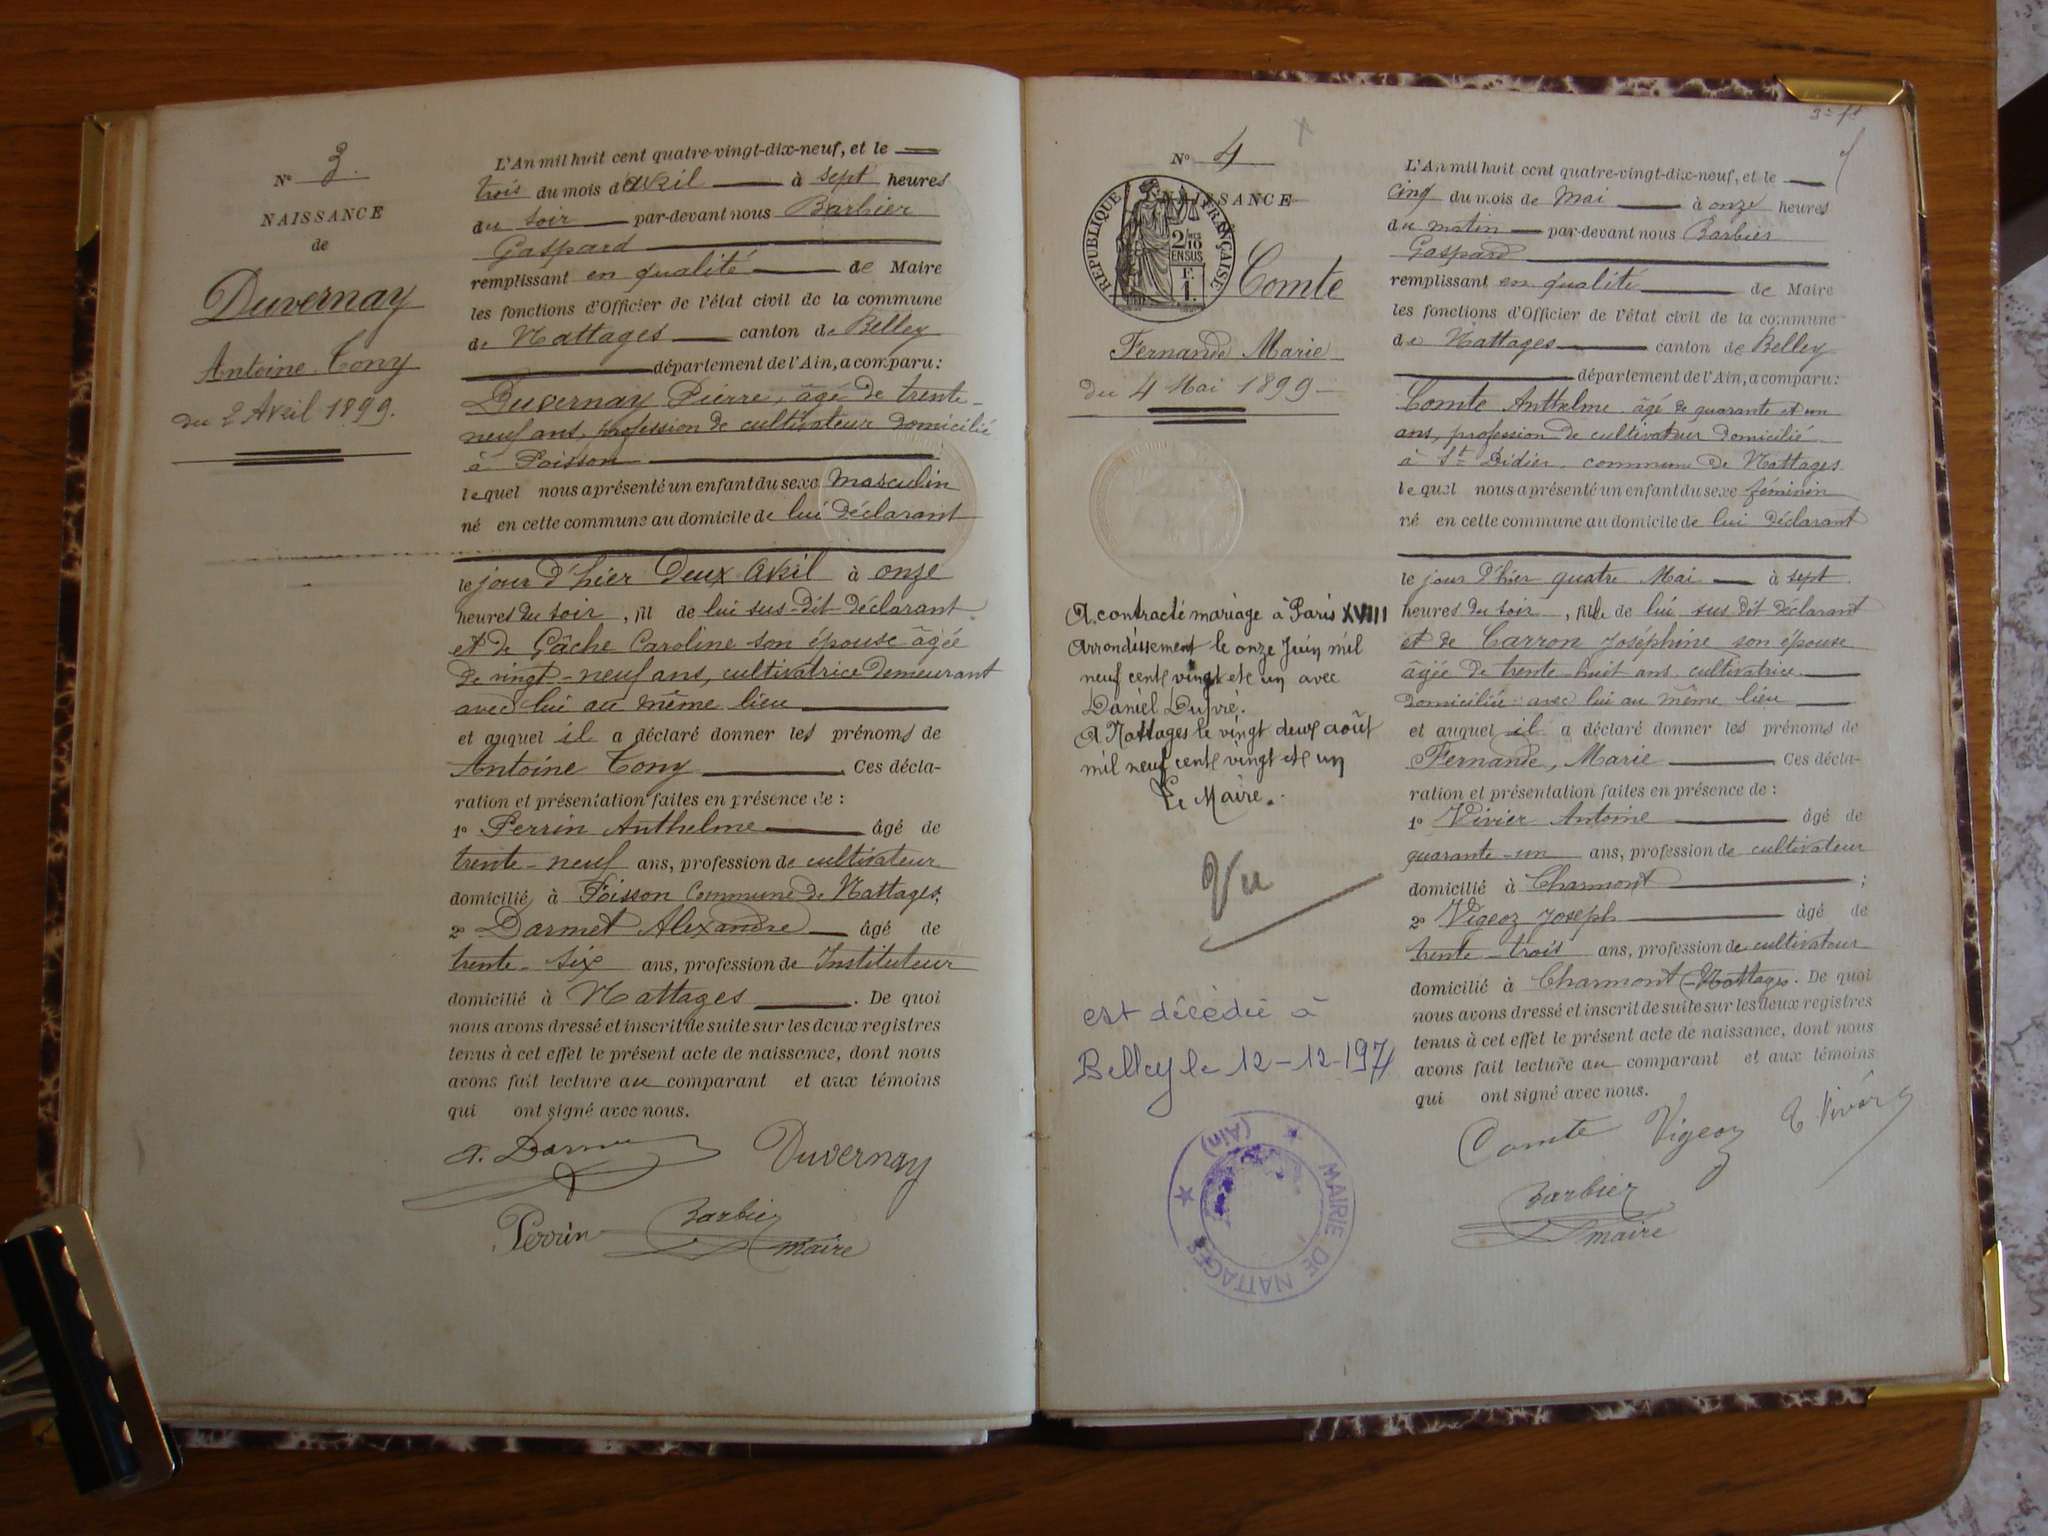 N° 3.
NAISSANCE
de
Duvernay
Antoine Tony
du 2 Avril 1899.
L'An mil huit cent quatre-vingt-dix-neuf, et le
trois du mois d'avril à sept heures
du soir par-devant nous Barbier
Gaspard
remplissant en qualité de Maire
les fonctions d'Officier de l'état civil de la commune
de Nattages canton de Belley
département de l'Ain, a comparu:
Duvernay Pierre, âgé de trente-
neuf ans, profession de cultivateur domicilié
à Poisson
lequel nous a présenté un enfant du sexe masculin
né en cette commune au domicile de lui déclarant
le jour d'hier deux avril à onze
heures du soir, fil de lui sus-dit déclarant
et de Gâche Caroline son épouse âgée
de vingt-neuf ans, cultivatrice demeurant
avec lui au même lieu
et auquel il a déclaré donner les prénoms de
Antoine Tony Ces décla-
ration et présentation faites en présence de:
1° Perrin Anthelme âgé de
trente-neuf ans, profession de cultivateur
domicilié à Poisson Commune de Nattages;
2° Darmet Alexandre âgé de
trente-six ans, profession de Instituteur
domicilié à Nattages. De quoi
nous avons dressé et inscrit de suite sur les deux registres
tenus à cet effet le présent acte de naissance, dont nous
avons fait lecture au comparant et aux témoins
qui ont signé avec nous.
Duvernay
Perrin Barbier
maire
N° 4
NAISSANCE
REPUBLIQUE FRANÇAISE
2/10
EN SUS
F.
1.
Comte
Fernande Marie
du 4 Mai 1899
A contracté mariage à Paris XVIII
Arrondissement le onze Juin mil
neuf cent vingt et un avec
Daniel
A Nattages le vingt deux août
mil neuf cent vingt et un
Le Maire.
Vu
est décédée à
Belley le 12-12-1971
MAIRIE DE NATTAGES
(Ain)
L'An mil huit cent quatre-vingt-dix-neuf, et le
cinq du mois de Mai à onze heures
du matin par-devant nous Barbier
Gaspard
remplissant en qualité de Maire
les fonctions d'Officier de l'état civil de la commune
de Nattages canton de Belley
département de l'Ain, a comparu:
Comte Anthelme âgé de quarante et un
ans, profession de cultivateur domicilié
à St Didier, commune de Nattages
lequel nous a présenté un enfant du sexe féminin
né en cette commune au domicile de lui déclarant
le jour d'hier quatre Mai à sept
heures du soir, fille de lui sus dit déclarant
et de Carron Joséphine son épouse
âgée de trente huit ans cultivatrice
domiciliée avec lui au même lieu
et auquel il a déclaré donner les prénoms de
Fernande, Marie Ces décla-
ration et présentation faites en présence de:
1° Vivier Antoine âgé de
quarante-un ans, profession de cultivateur
domicilié à Charmont;
2° Vigeoz Joseph âgé de
trente-trois ans, profession de cultivateur
domicilié à Charmont-Nattages. De quoi
nous avons dressé et inscrit de suite sur les deux registres
tenus à cet effet le présent acte de naissance, dont nous
avons fait lecture au comparant et aux témoins
qui ont signé avec nous.
Comte Vigeoz
Barbier
maire